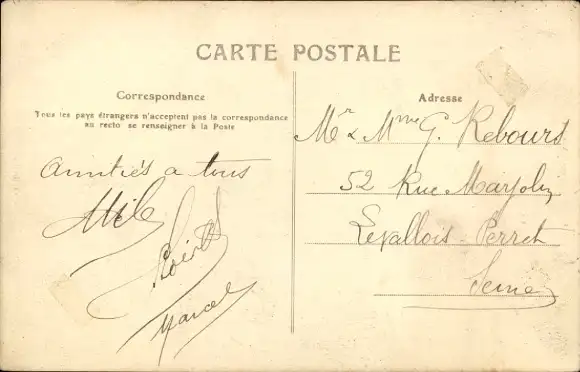 CARTE POSTALE
Correspondance
Tous les pays étrangers n'acceptent pas la correspondance
au recto se renseigner à la Poste
Amitiés a tous
Marcel
Adresse
Mr & Mme G. Rebours
52 Rue Marjolin
Levallois-Perret
Seine